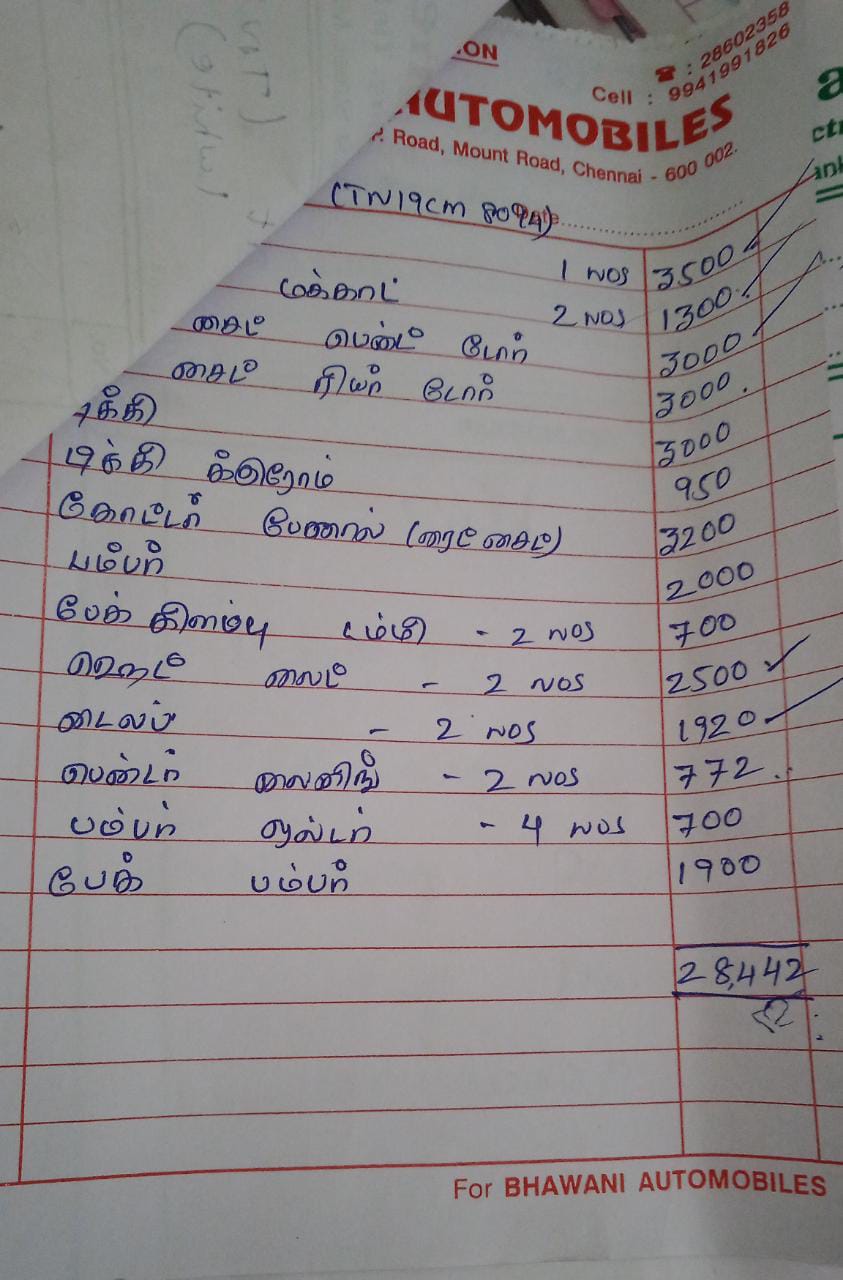 ON
☎ : 28602358
Cell : 9941991826
AUTOMOBILES
P. Road, Mount Road, Chennai - 600 002.
(TN19CM
1 NOS 3500
மக்காட் 2 NOS 1300
சைட் பெண்ட் டோர் 3000
சைட் ரியர் டோர் 3000
க்கி 3000
டிக்கி க்ரோம் 950
கோட்டர் பேனால் (ரைட் சைட்) 3200
பம்பர் 2000
பேக் கிளம்பு டம்மி - 2 NOS 700
ஹெட் லைட் - 2 NOS 2500
டைலம் - 2 NOS 1920
பெண்டர் லைனிங் - 2 NOS 772
பம்பர் ஆல்டர் - 4 NOS 700
பேக் பம்பர் 1900
28,442
For BHAWANI AUTOMOBILES